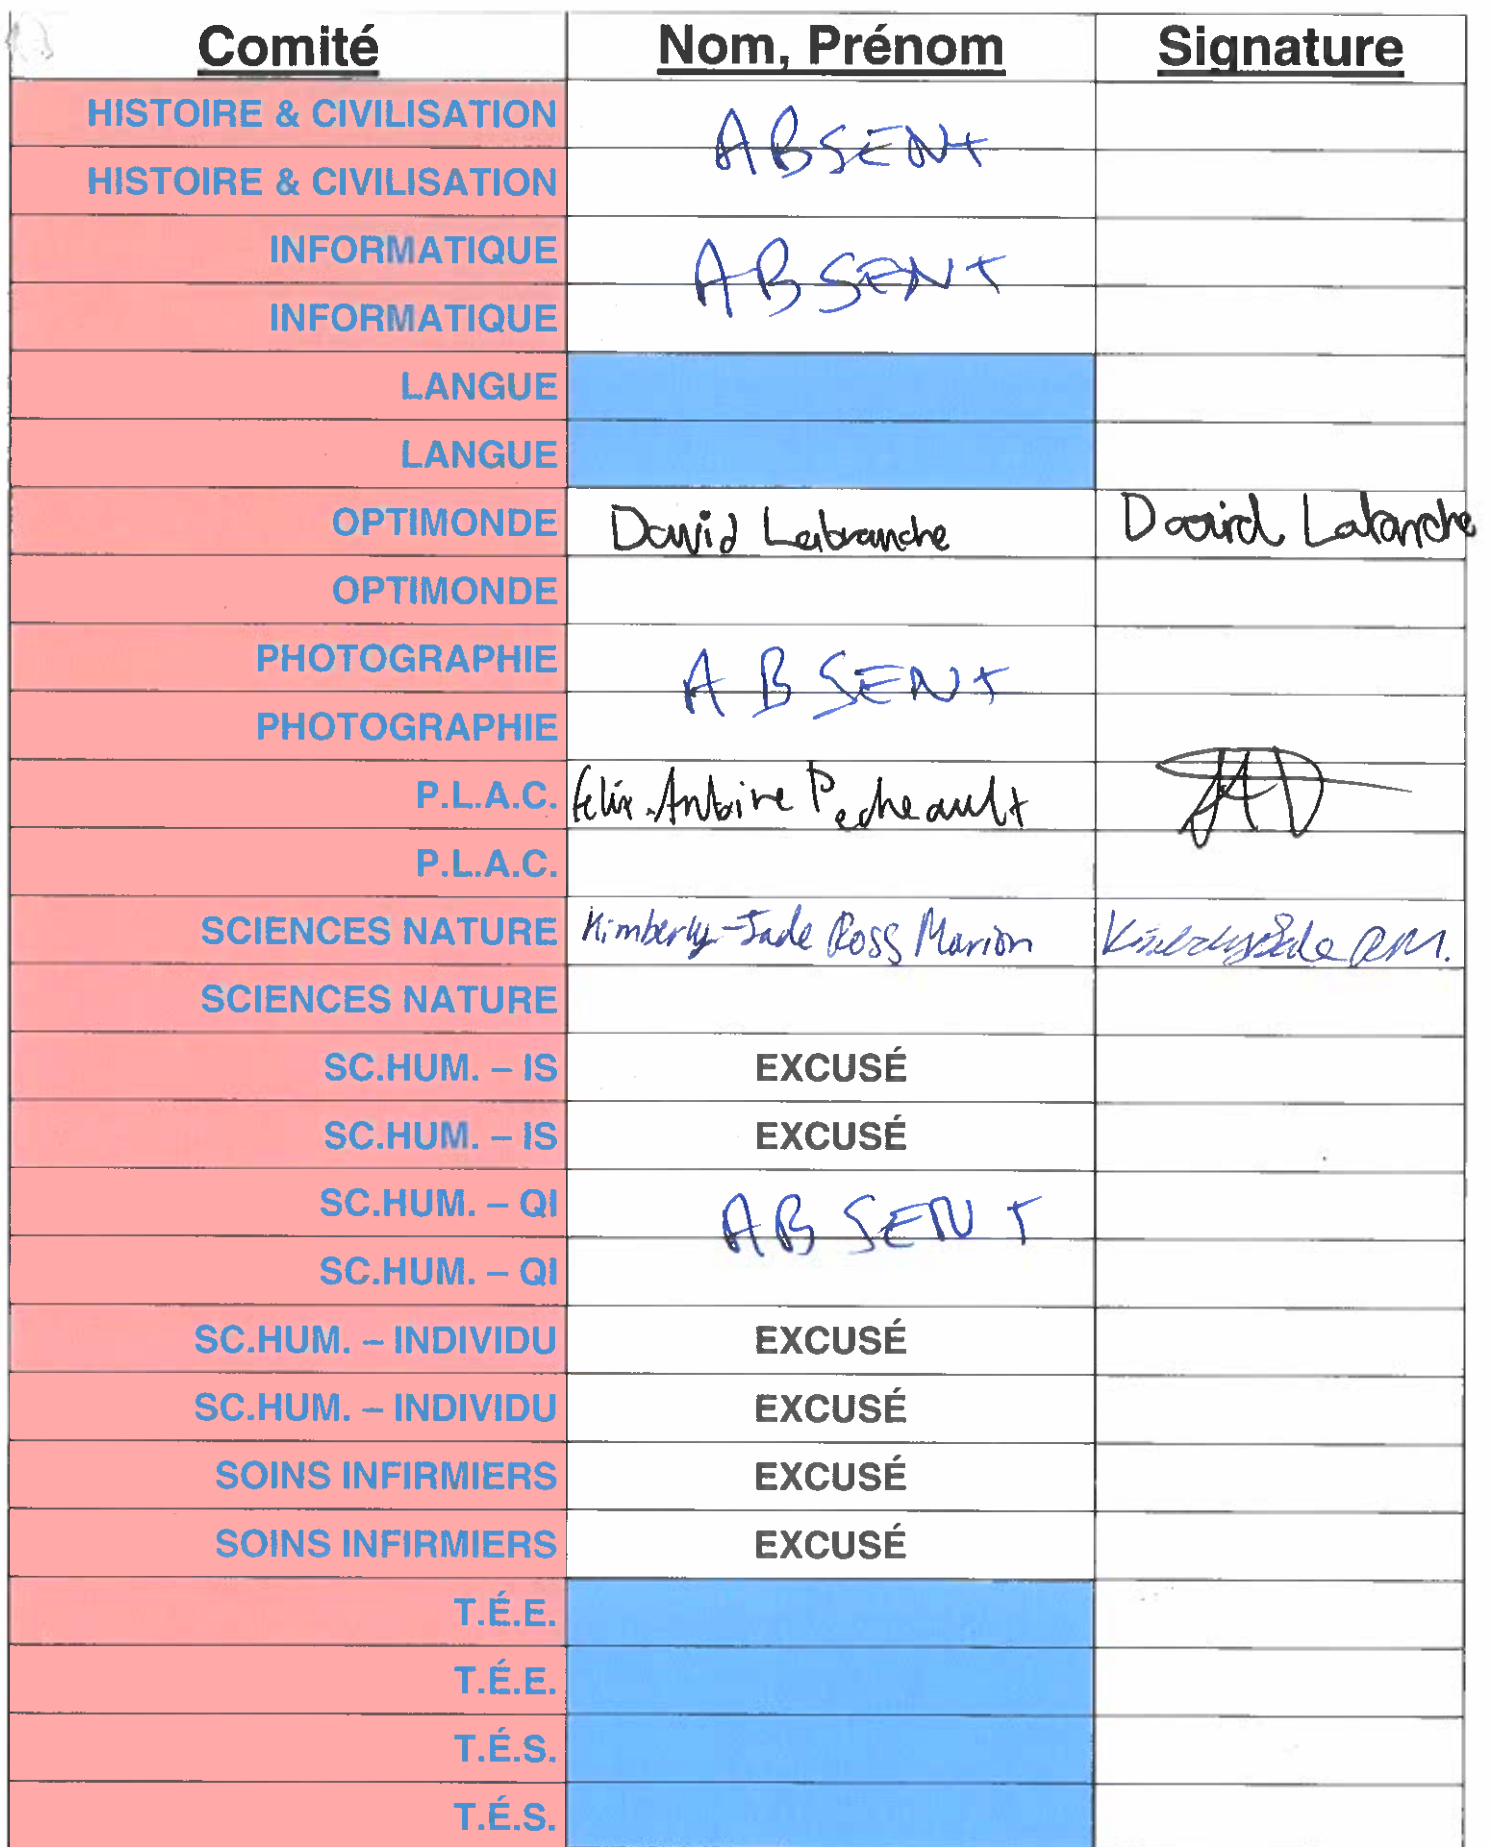 Comité Nom, Prénom Signature
HISTOIRE & CIVILISATION
ABSENT
HISTOIRE & CIVILISATION
INFORMATIQUE
ABSENT
INFORMATIQUE
LANGUE
LANGUE
OPTIMONDE David Labranche David Labranche
OPTIMONDE
PHOTOGRAPHIE
ABSENT
PHOTOGRAPHIE
P.L.A.C. Félix-Antoine
P.L.A.C.
SCIENCES NATURE Kimberly-Jade Ross Marion
SCIENCES NATURE
SC.HUM. – IS EXCUSÉ
SC.HUM. – IS EXCUSÉ
SC.HUM. – QI
ABSENT
SC.HUM. – QI
SC.HUM. – INDIVIDU EXCUSÉ
SC.HUM. – INDIVIDU EXCUSÉ
SOINS INFIRMIERS EXCUSÉ
SOINS INFIRMIERS EXCUSÉ
T.É.E.
T.É.E.
T.É.S.
T.É.S.